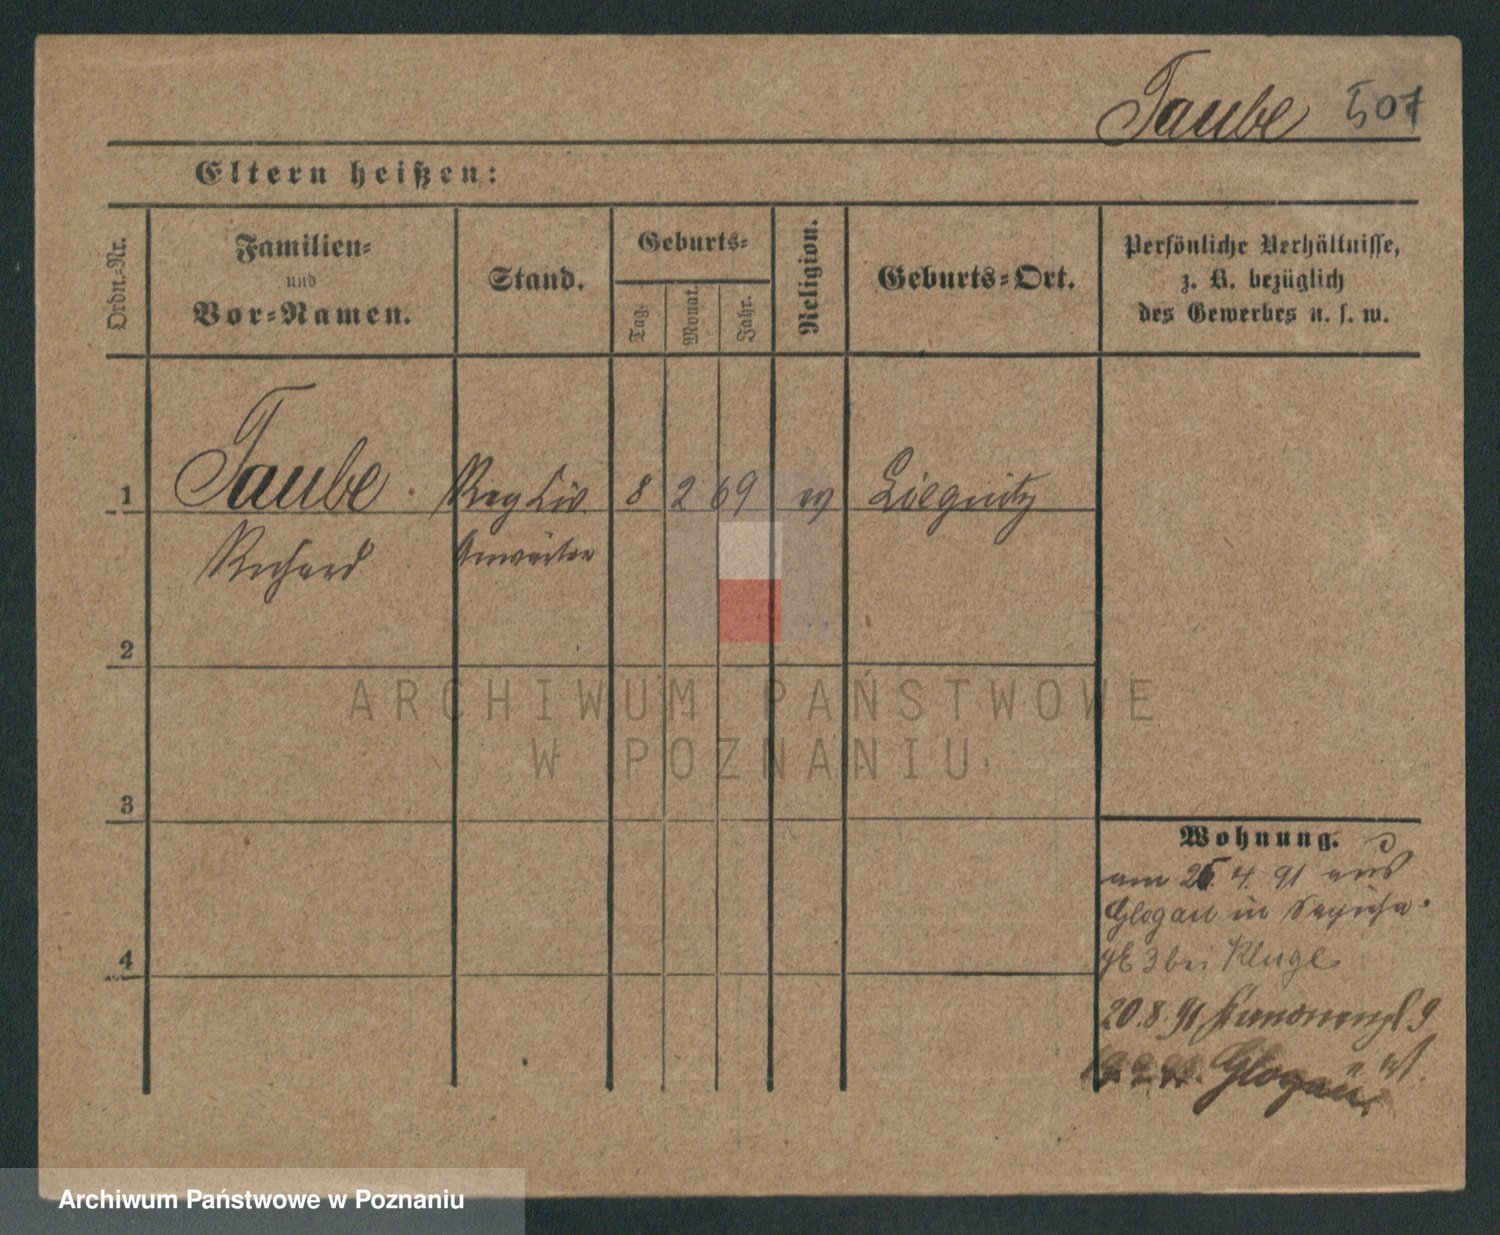 Taube 507
Eltern heißen:
Ordn.-Nr.
Familien-
und
Vor-Namen.
Stand.
Geburts-
Tag.
Monat.
Jahr.
Religion.
Geburts-Ort.
Persönliche Verhältnisse,
z. B. bezüglich
des Gewerbes u. s. w.
1 Taube Reg Civ. 8 2 69 ev Liegnitz
Richard Anwärter
2
3
4
Wohnung.
am 25. 4. 91 aus
Glogau in
3 bei Kluge
20.8.91 9
Glogau
ARCHIWUM PAŃSTWOWE
W POZNANIU
Archiwum Państwowe w Poznaniu